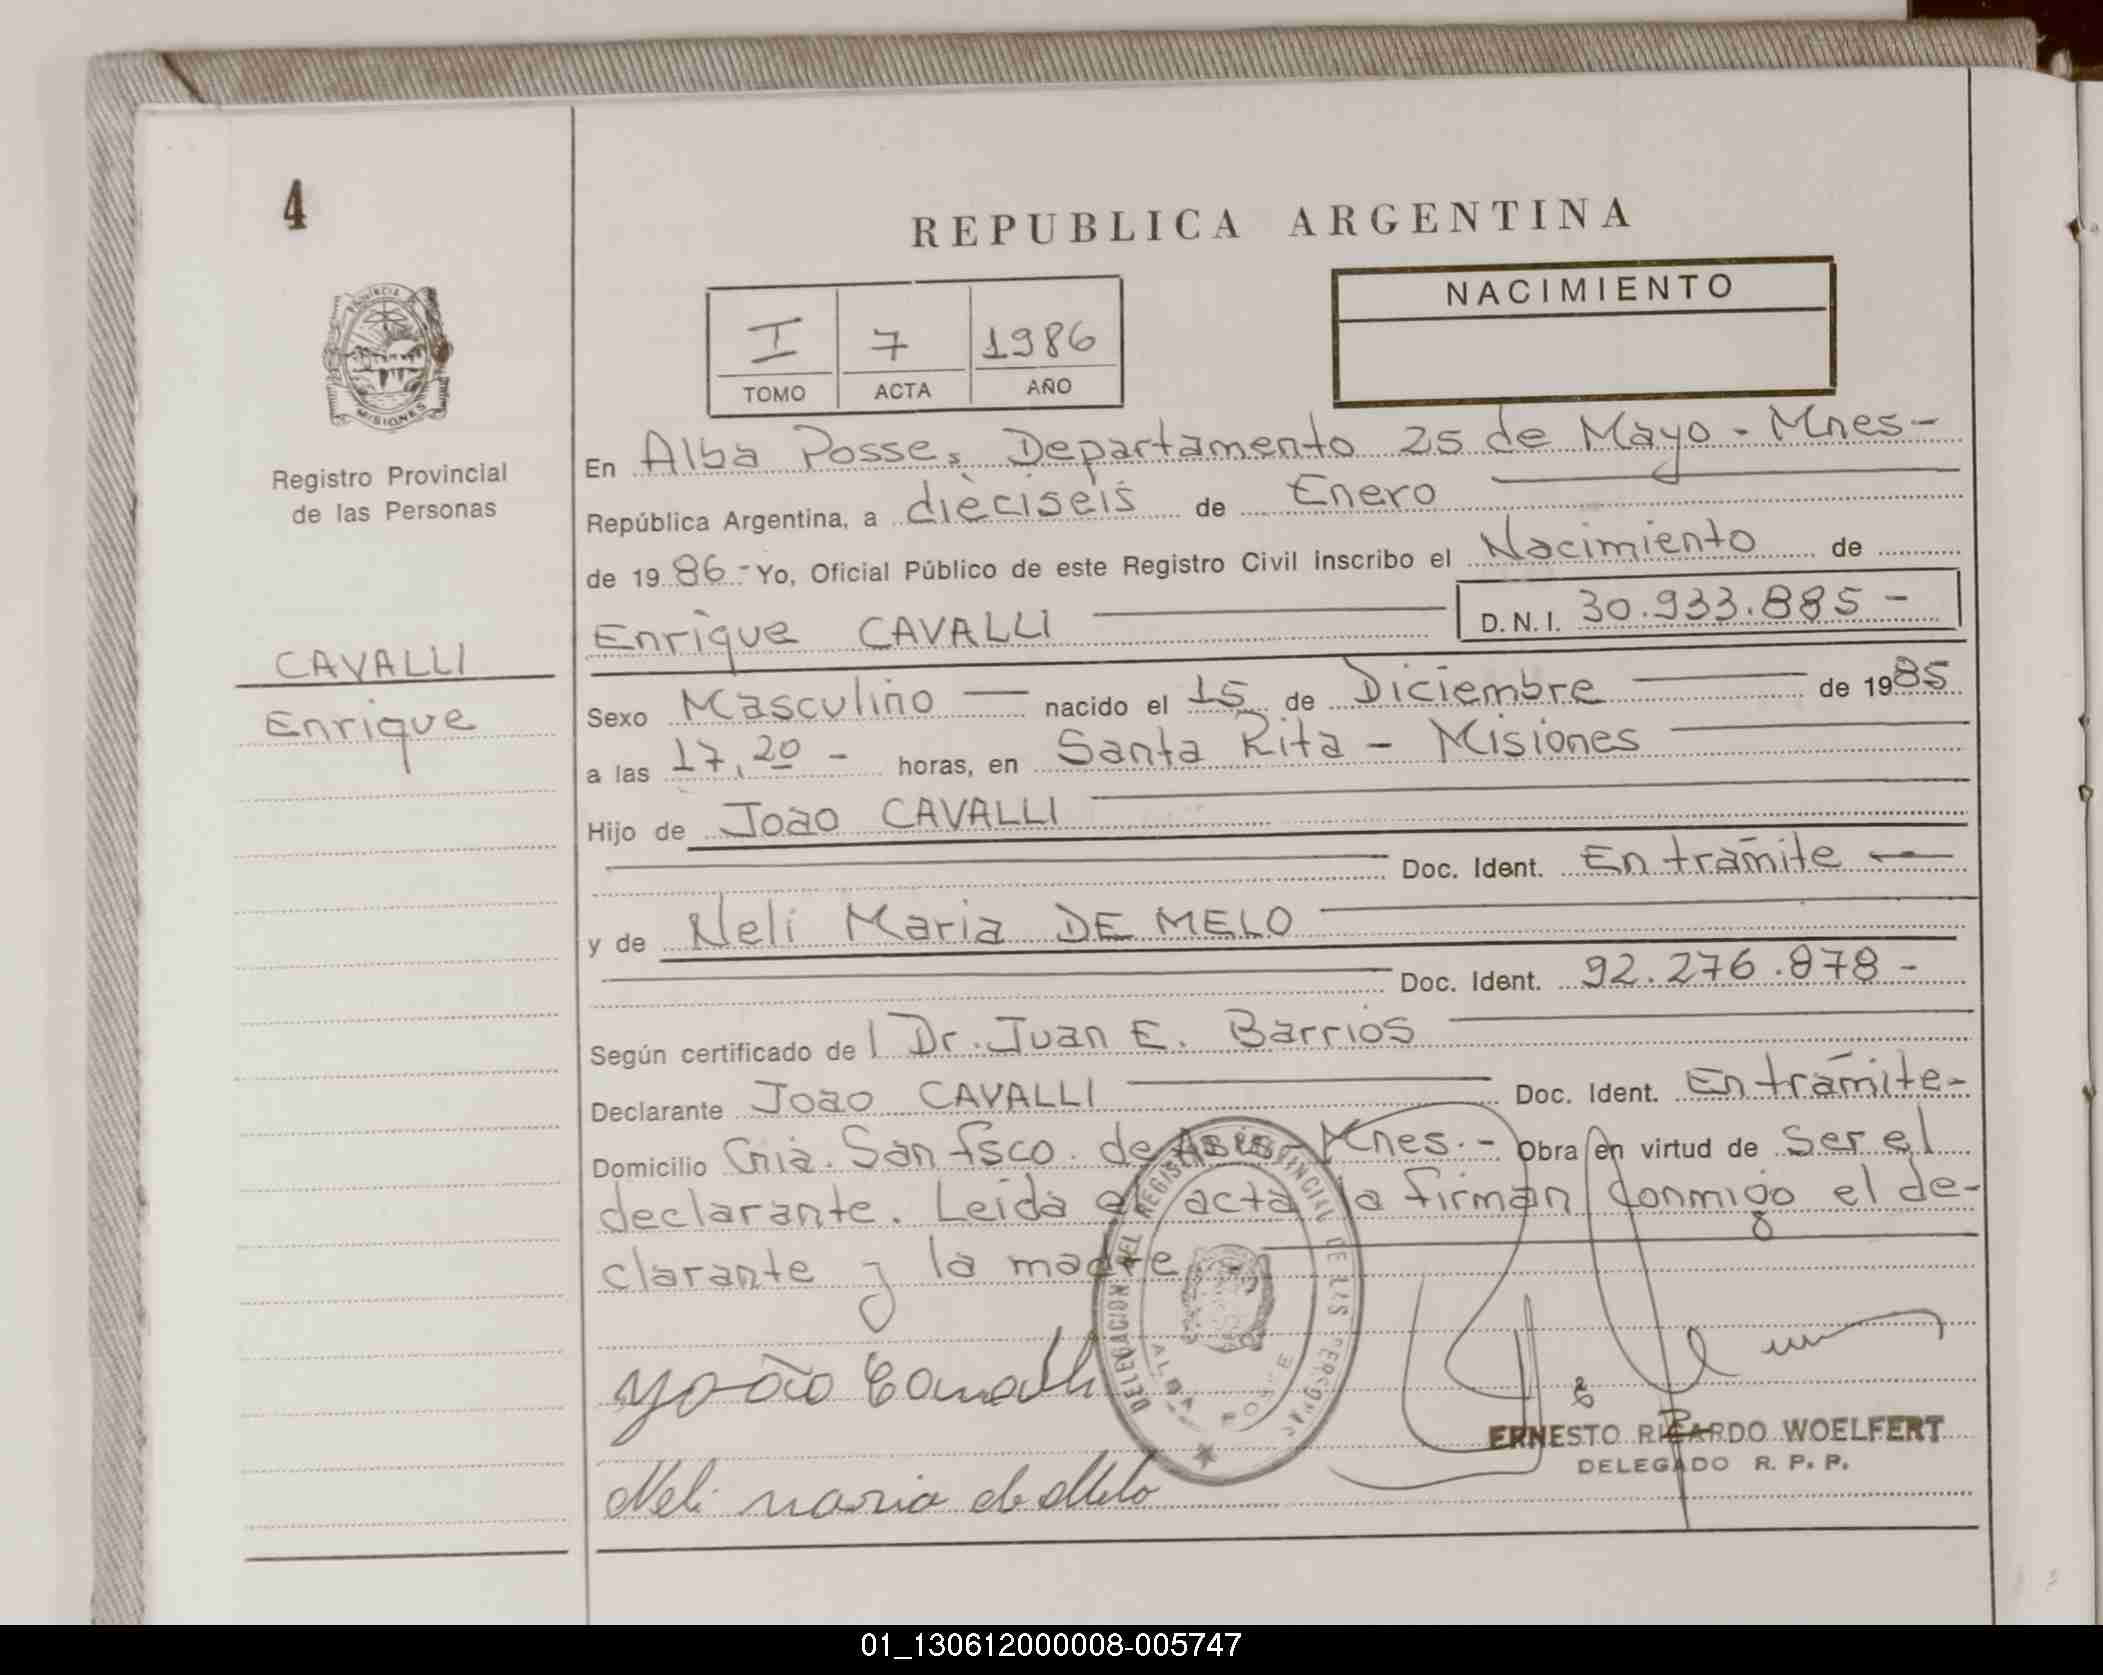 4
REPUBLICA ARGENTINA
PROVINCIA
MISIONES
Registro Provincial
de las Personas
I 7 1986
TOMO ACTA AÑO
NACIMIENTO
En Alba Posse, Departamento 25 de Mayo - Mnes -
República Argentina, a dieciseis de Enero
de 1986 - Yo, Oficial Público de este Registro Civil inscribo el Nacimiento de
Enrique CAVALLI D.N.I. 30.933.885 -
CAVALLI
Enrique
Sexo Masculino nacido el 15 de Diciembre de 1985
a las 17,20 - horas, en Santa Rita - Misiones
Hijo de Joao CAVALLI
Doc. Ident. En trámite
y de Neli Maria DE MELO
Doc. Ident. 92.276.878 -
Según certificado del Dr. Juan E. Barrios
Declarante Joao CAVALLI Doc. Ident. En trámite -
Domicilio Cnia. San fsco. de Asis - Mnes. - Obra en virtud de ser el
declarante. Leida el acta la firman conmigo el de-
clarante y la madre
DELEGACION DEL REGISTRO PROVINCIAL DE LAS PERSONAS
ALBA POSSE
Neli maria de Melo
ERNESTO RICARDO WOELFERT
DELEGADO R. P. P.
01_130612000008-005747